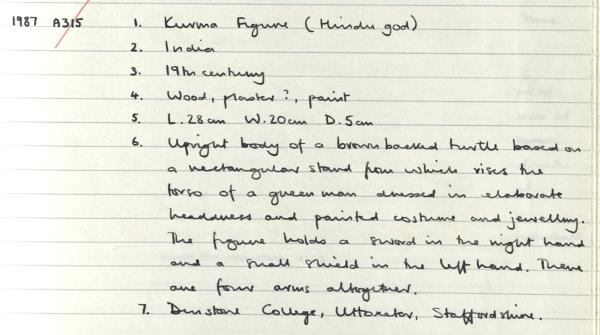 1987 A315 1. Kurma Figure (Hindu god)
2. India
3. 19th century
4. Wood, plaster?, paint
5. L.28cm W.20cm D.5cm
6. Upright body of a brown backed turtle based on
a rectangular stand from which rises the
torso of a queen man dressed in elaborate
headdress and painted costume and jewellery.
The figure holds a sword in the right hand
and a small shield in the left hand. There
are four arms altogether.
7. Denstone College, Uttoxeter, Staffordshire.